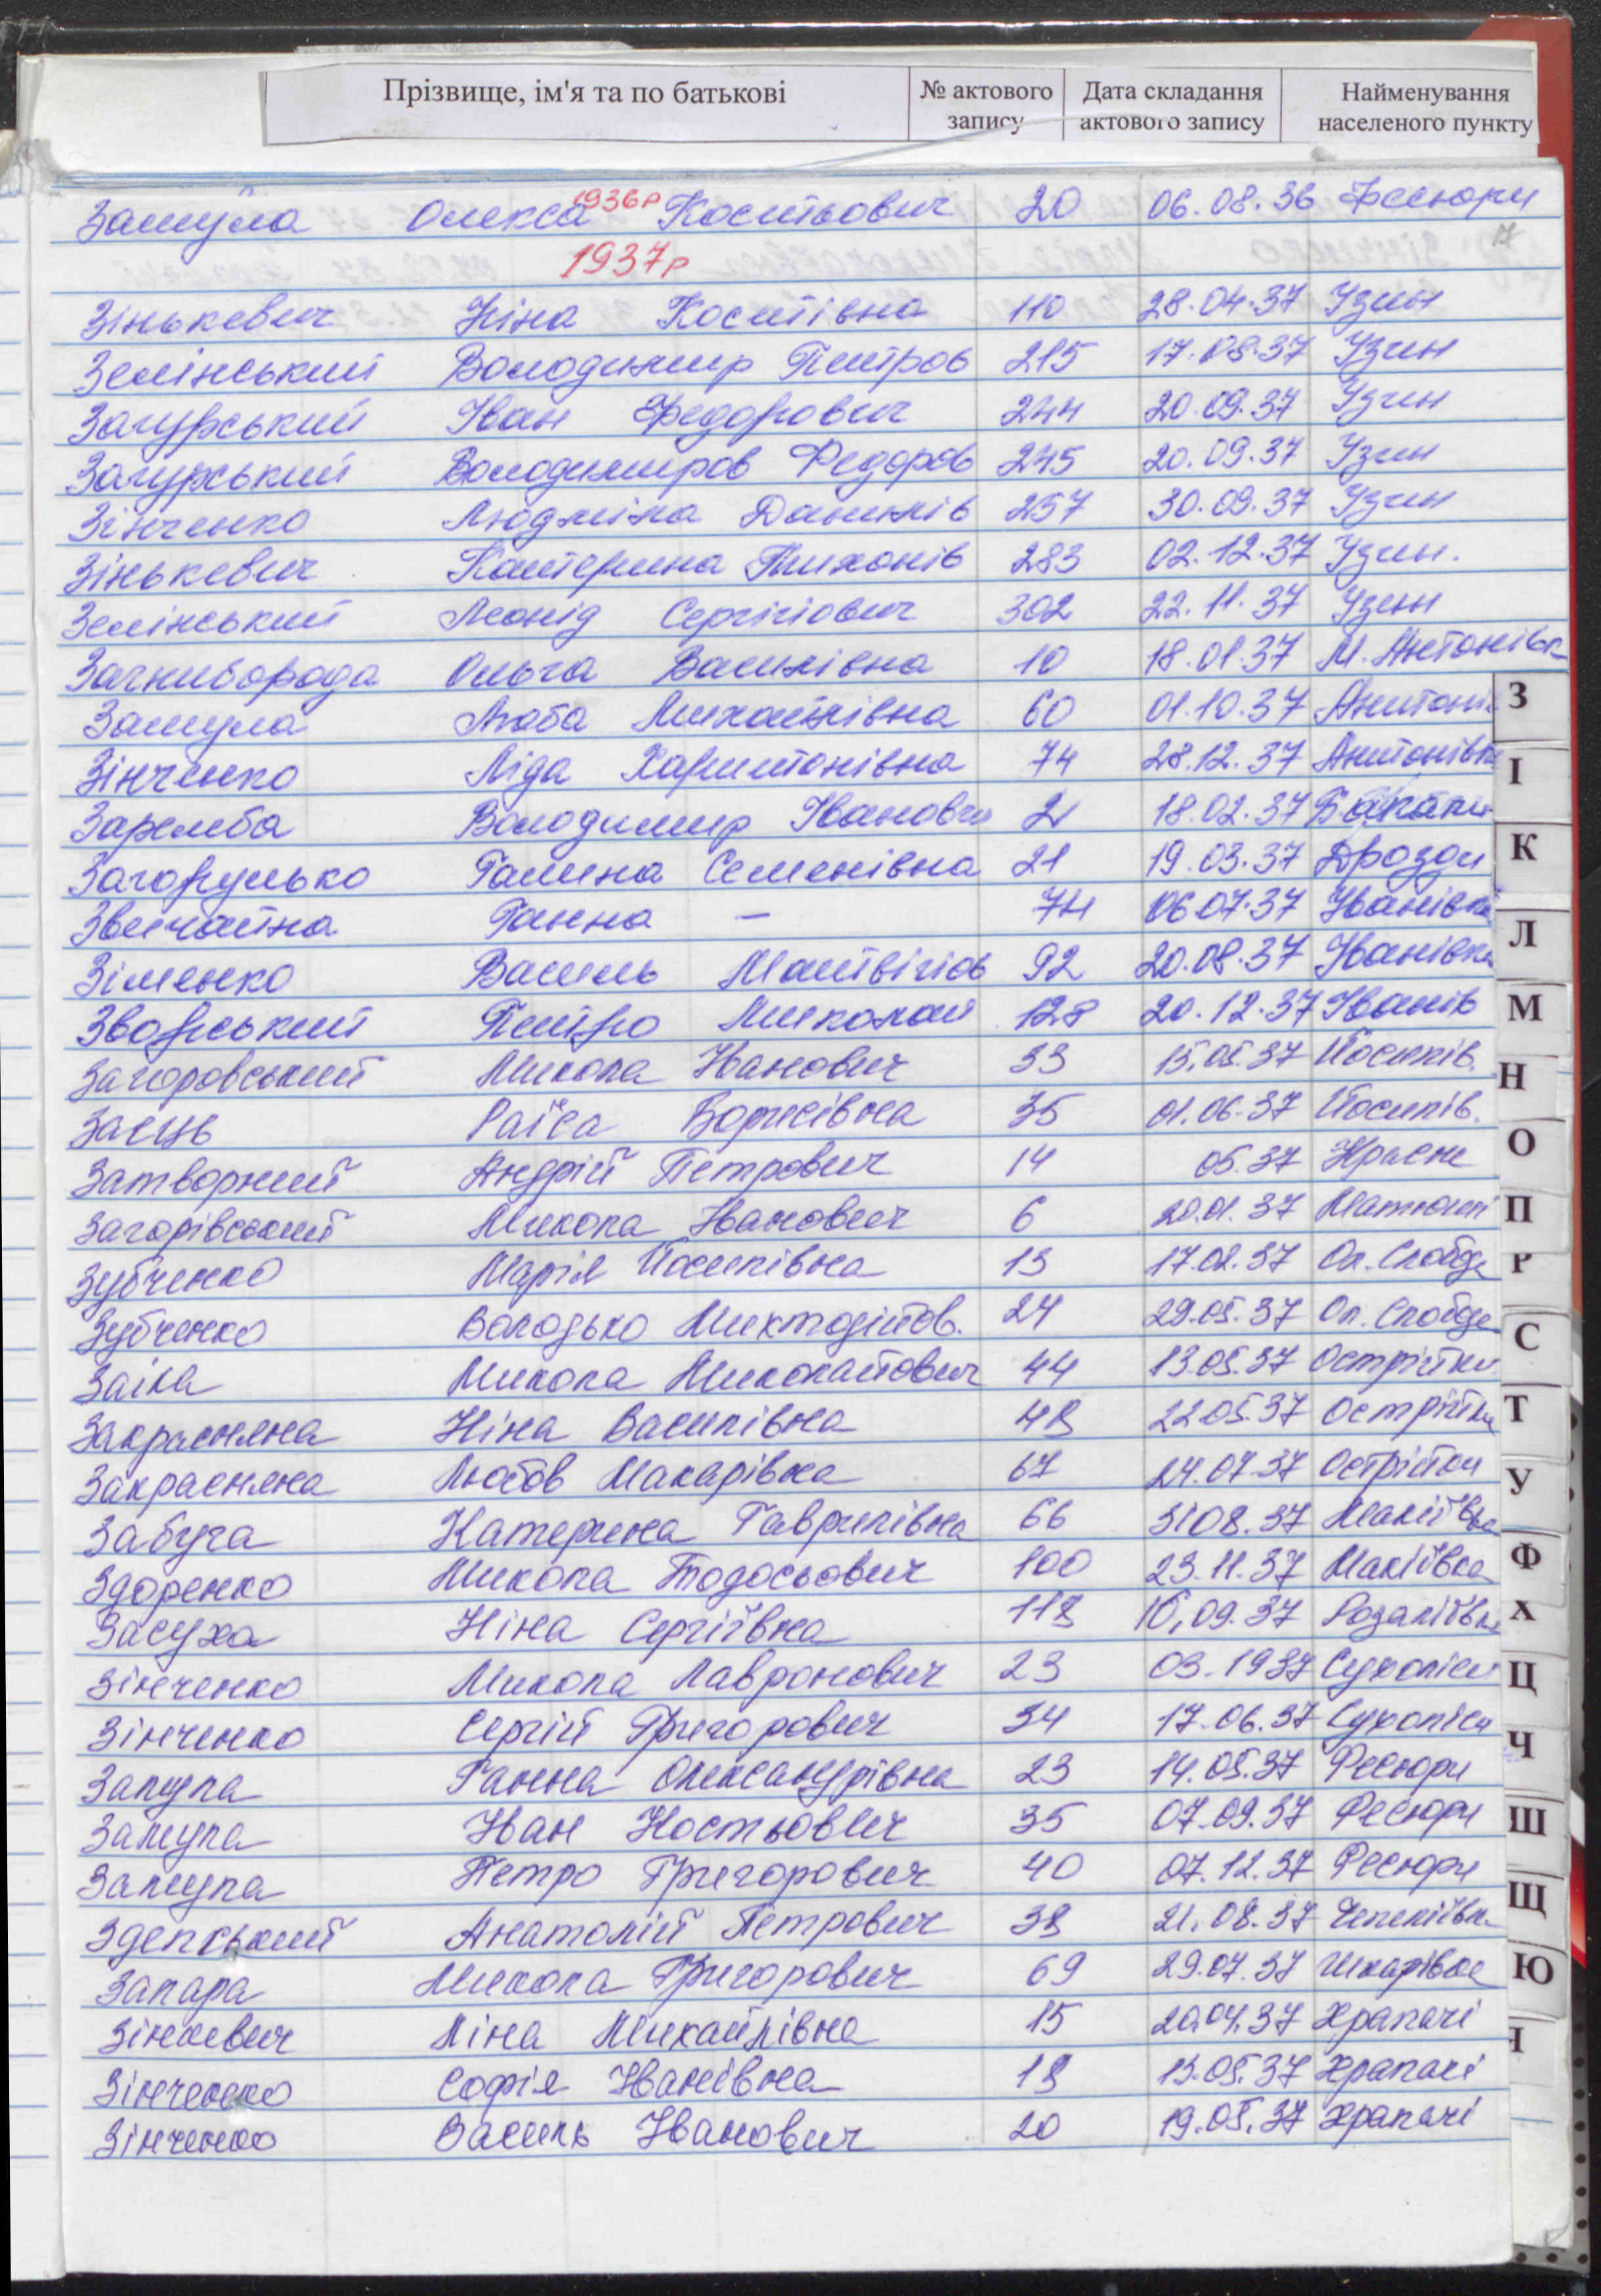 Прізвище, ім'я та по батькові № актового запису Дата складання актового запису Найменування населеного пункту
1936р
Замула Олекса Костьович 20 06.08.36 Фесюри
1937р
Зінькевич Ніна Костівна 110 28.04.37 Узин
Зелінський Володимир Петров 215 17.08.37 Узин
Загурський Іван Федорович 244 20.09.37 Узин
Загурський Володимиров Федоров 245 20.09.37 Узин
Зінченко Людміла Данилів 257 30.09.37 Узин
Зінькевич Катерина Тихонів 283 02.12.37 Узин.
Зелінський Леонід Сергійович 302 22.11.37 Узин
Загниборода Ольга Василівна 10 18.01.37 М. Антонівк
Замула Люба Михайлівна 60 01.10.37 Антонів
Зінченко Ліда Харитонівна 74 28.12.37 Антонівка
Заремба Володимир Іванович 2 18.02.37
Загорулько Галина Семенівна 21 19.03.37 Дрозди
Звичайна Ганна — 74 06.07.37 Іванівка
Зіменко Василь Матвійов 92 20.08.37 Іванівка
Зворський Петро Миколай 128 20.12.37 Іванів
Загоровський Микола Іванович 33 15.05.37 Йосипів.
Заєць Раїса Борисівна 35 01.06.37 Йосипів.
Затворний Андрій Петрович 14 05.37 Красне
Загорівський Микола Іванович 6 20.01.37 Матюші
Зубченко Марія Йосипівна 13 17.02.37 Ол. Слобода
Зубченко Володько 24 29.05.37 Ол. Слобода
Заіка Микола Миколайович 44 13.05.37 Острійки
Закрасняна Ніна Василівна 48 22.05.37 Острійки
Закрасняна Любов Макарівна 67 24.07.37 Острійки
Забуга Катерина Гаврилівна 66 31.08.37 Макіївка
Здоренко Микола Тодосьович 100 23.11.37 Макіївка
Засуха Ніна Сергіївна 118 10.09.37 Розаліївка
Зінченко Микола Лавронович 23 03.1937 Сухоліси
Зінченко Сергій Григорович 34 17.06.37 Сухоліси
Замула Ганна Олександрівна 23 14.05.37 Фесюри
Замула Іван Костьович 35 07.09.37 Фесюри
Замула Петро Григорович 40 07.12.37 Фесюри
Зделський Анатолій Петрович 38 21.08.37 Чепеліївка
Запара Микола Григорович 69 29.07.37 Шкарівка
Зінкевич Ліна Михайлівна 15 20.04.37 Храпачі
Зінченко Софія Іванівна 18 13.05.37 Храпачі
Зінченко Василь Іванович 20 19.05.37 Храпачі
З
І
К
Л
М
Н
О
П
Р
С
Т
У
Ф
Х
Ц
Ч
Ш
Щ
Ю
Я